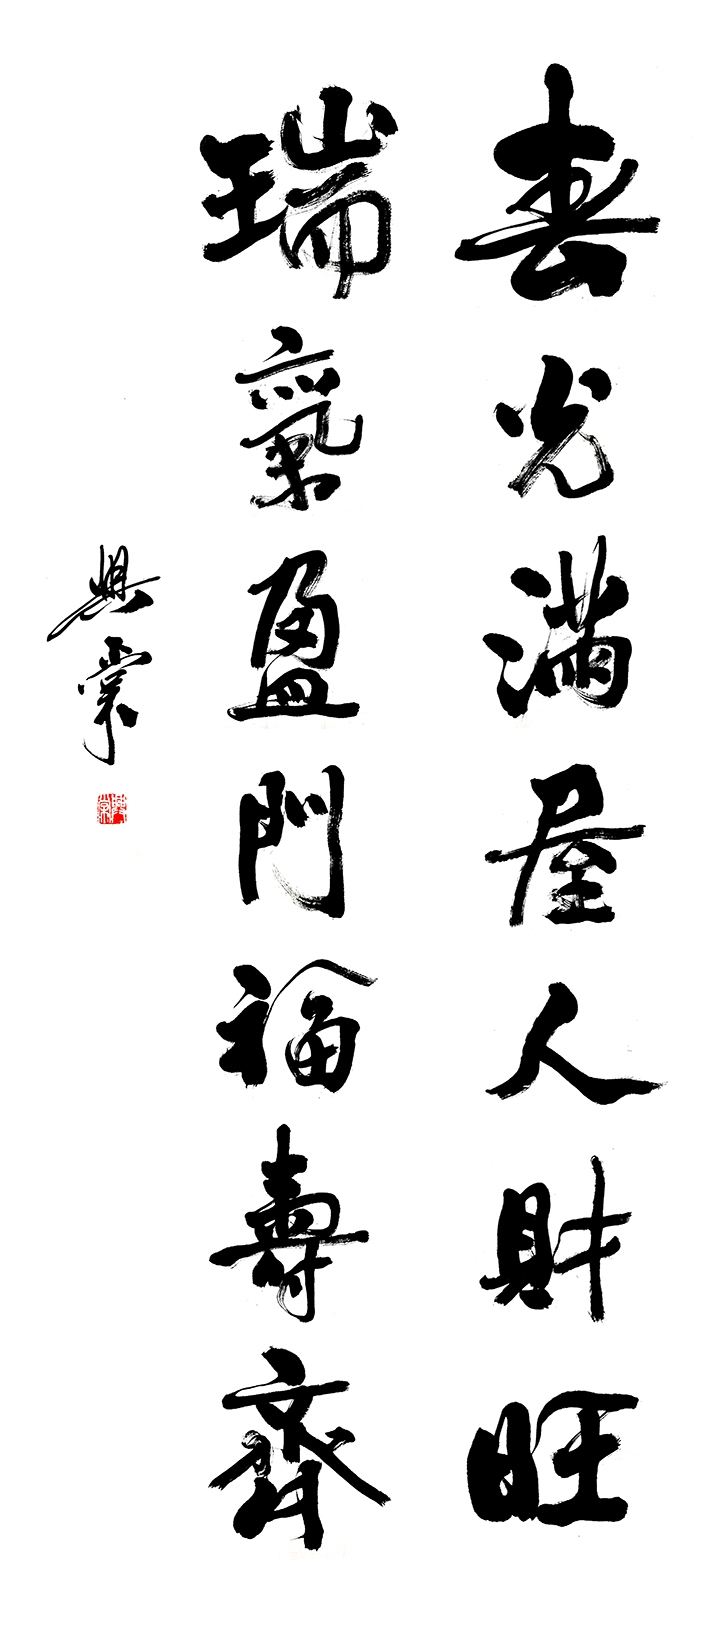 春光滿屋人財旺
瑞氣盈門福壽齊
興棠